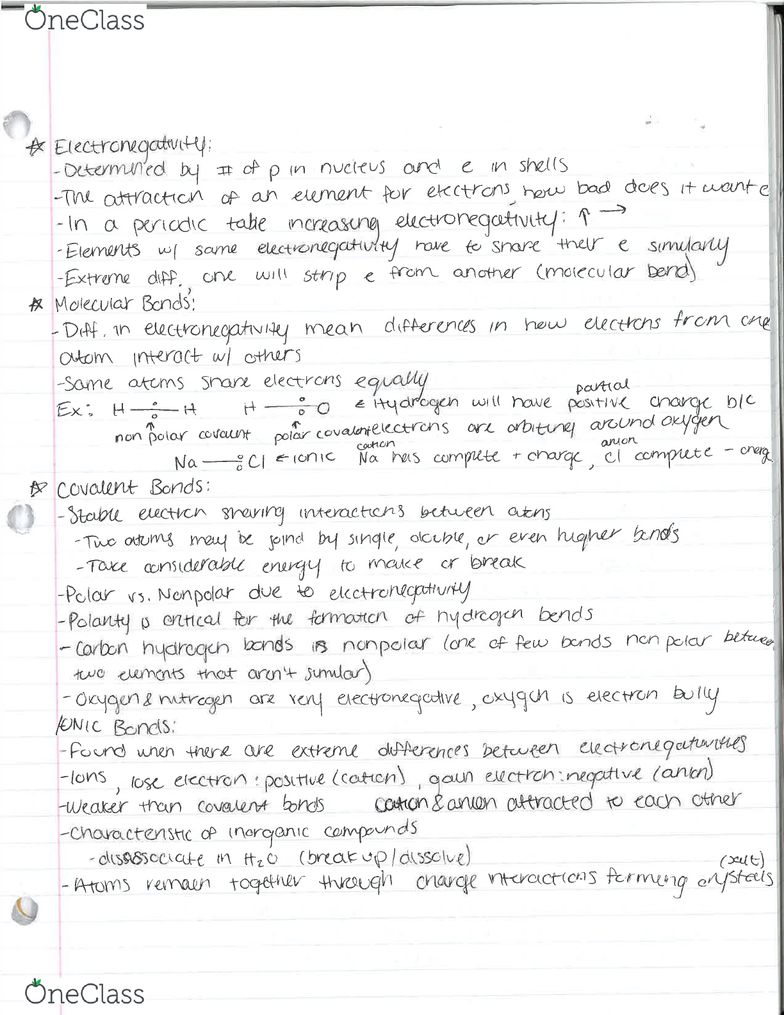 OneClass
☆ Electronegativity:
-Determined by # of p in nucleus and e in shells
-The attraction of an element for electrons, how bad does it want e
-In a periodic table increasing electronegativity: ↑ →
-Elements w/ same electronegativity have to share their e similarly
-Extreme diff., one will strip e from another (molecular bond)
☆ Molecular Bonds:
-Diff. in electronegativity mean differences in how electrons from one
atom interact w/ others
-Same atoms share electrons equally
partial
Ex: H —:— H H —:O ← Hydrogen will have positive charge b/c
↑ ↑
non polar covalent polar covalent electrons are orbiting around oxygen
cation anion
Na —:Cl ← ionic Na has complete + charge, Cl complete -
☆ Covalent Bonds:
-Stable electron sharing interactions between atoms
-Two atoms may be joind by single, double, or even higher bonds
-Take considerable energy to make or break
-Polar vs. Nonpolar due to electronegativity
-Polarity is critical for the formation of hydrogen bonds
-Carbon hydrogen bonds is nonpolar (one of few bonds non polar
two elements that aren't similar)
-Oxygen & nitrogen are very electronegative, oxygen is electron bully
IONIC Bonds:
-Found when there are extreme differences between electronegativities
-Ions, lose electron: positive (cation), gain electron: negative (anion)
-Weaker than covalent bonds cation & anion attracted to each other
-Characteristic of inorganic compounds
-dissassociate in H₂O (break up/dissolve)
(salt)
-Atoms remain together through charge interactions forming crystals
OneClass